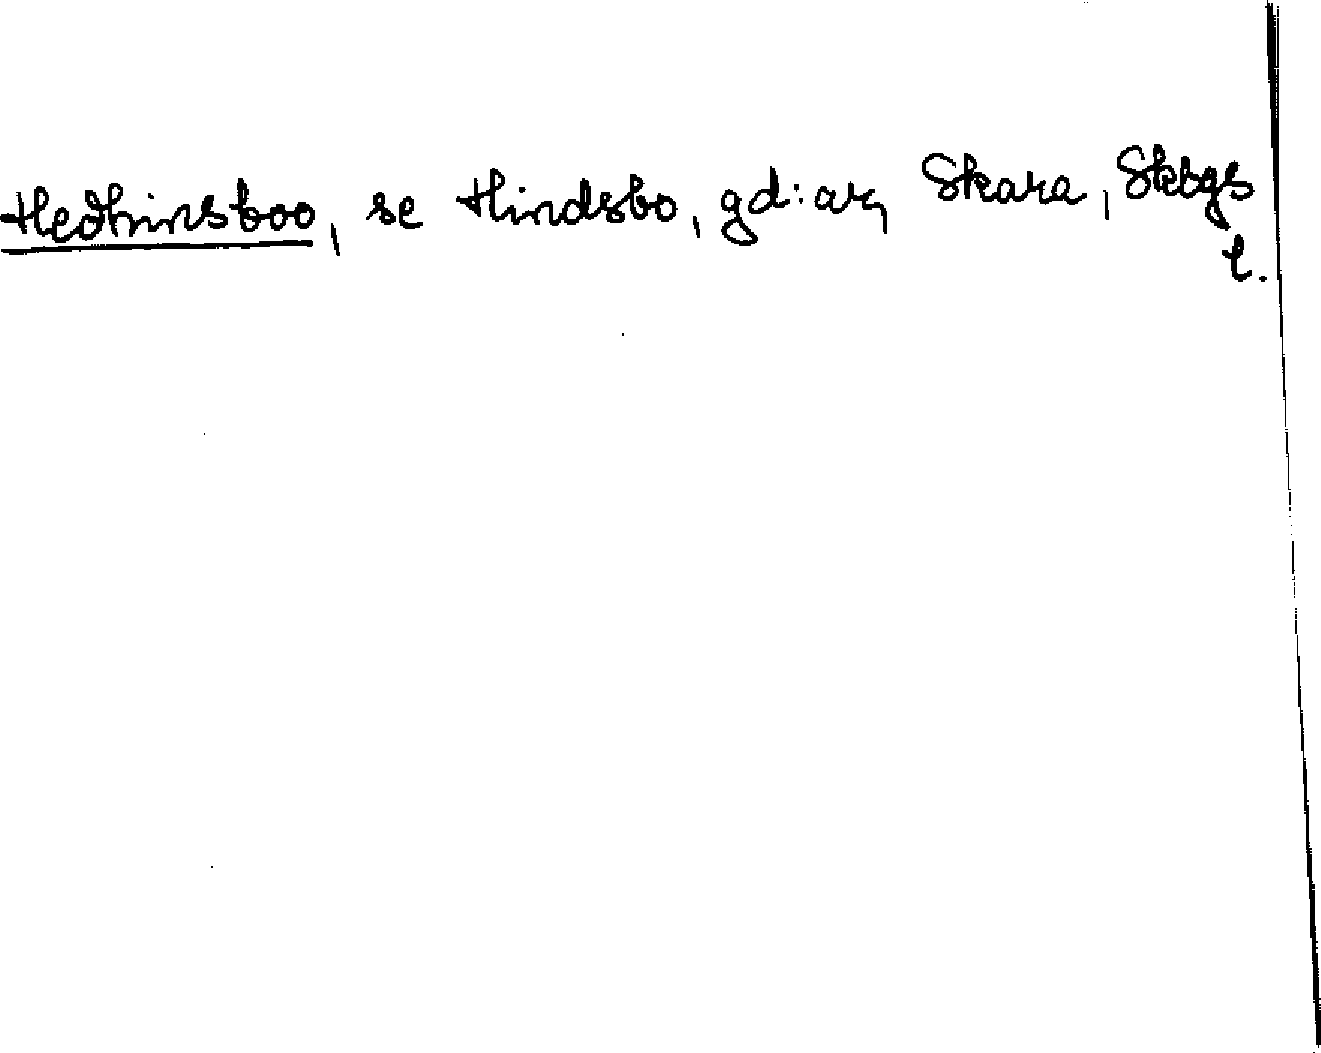 Hedhinsboo, se Hindsbo, gd:ar, Skara, Skbgs
l.